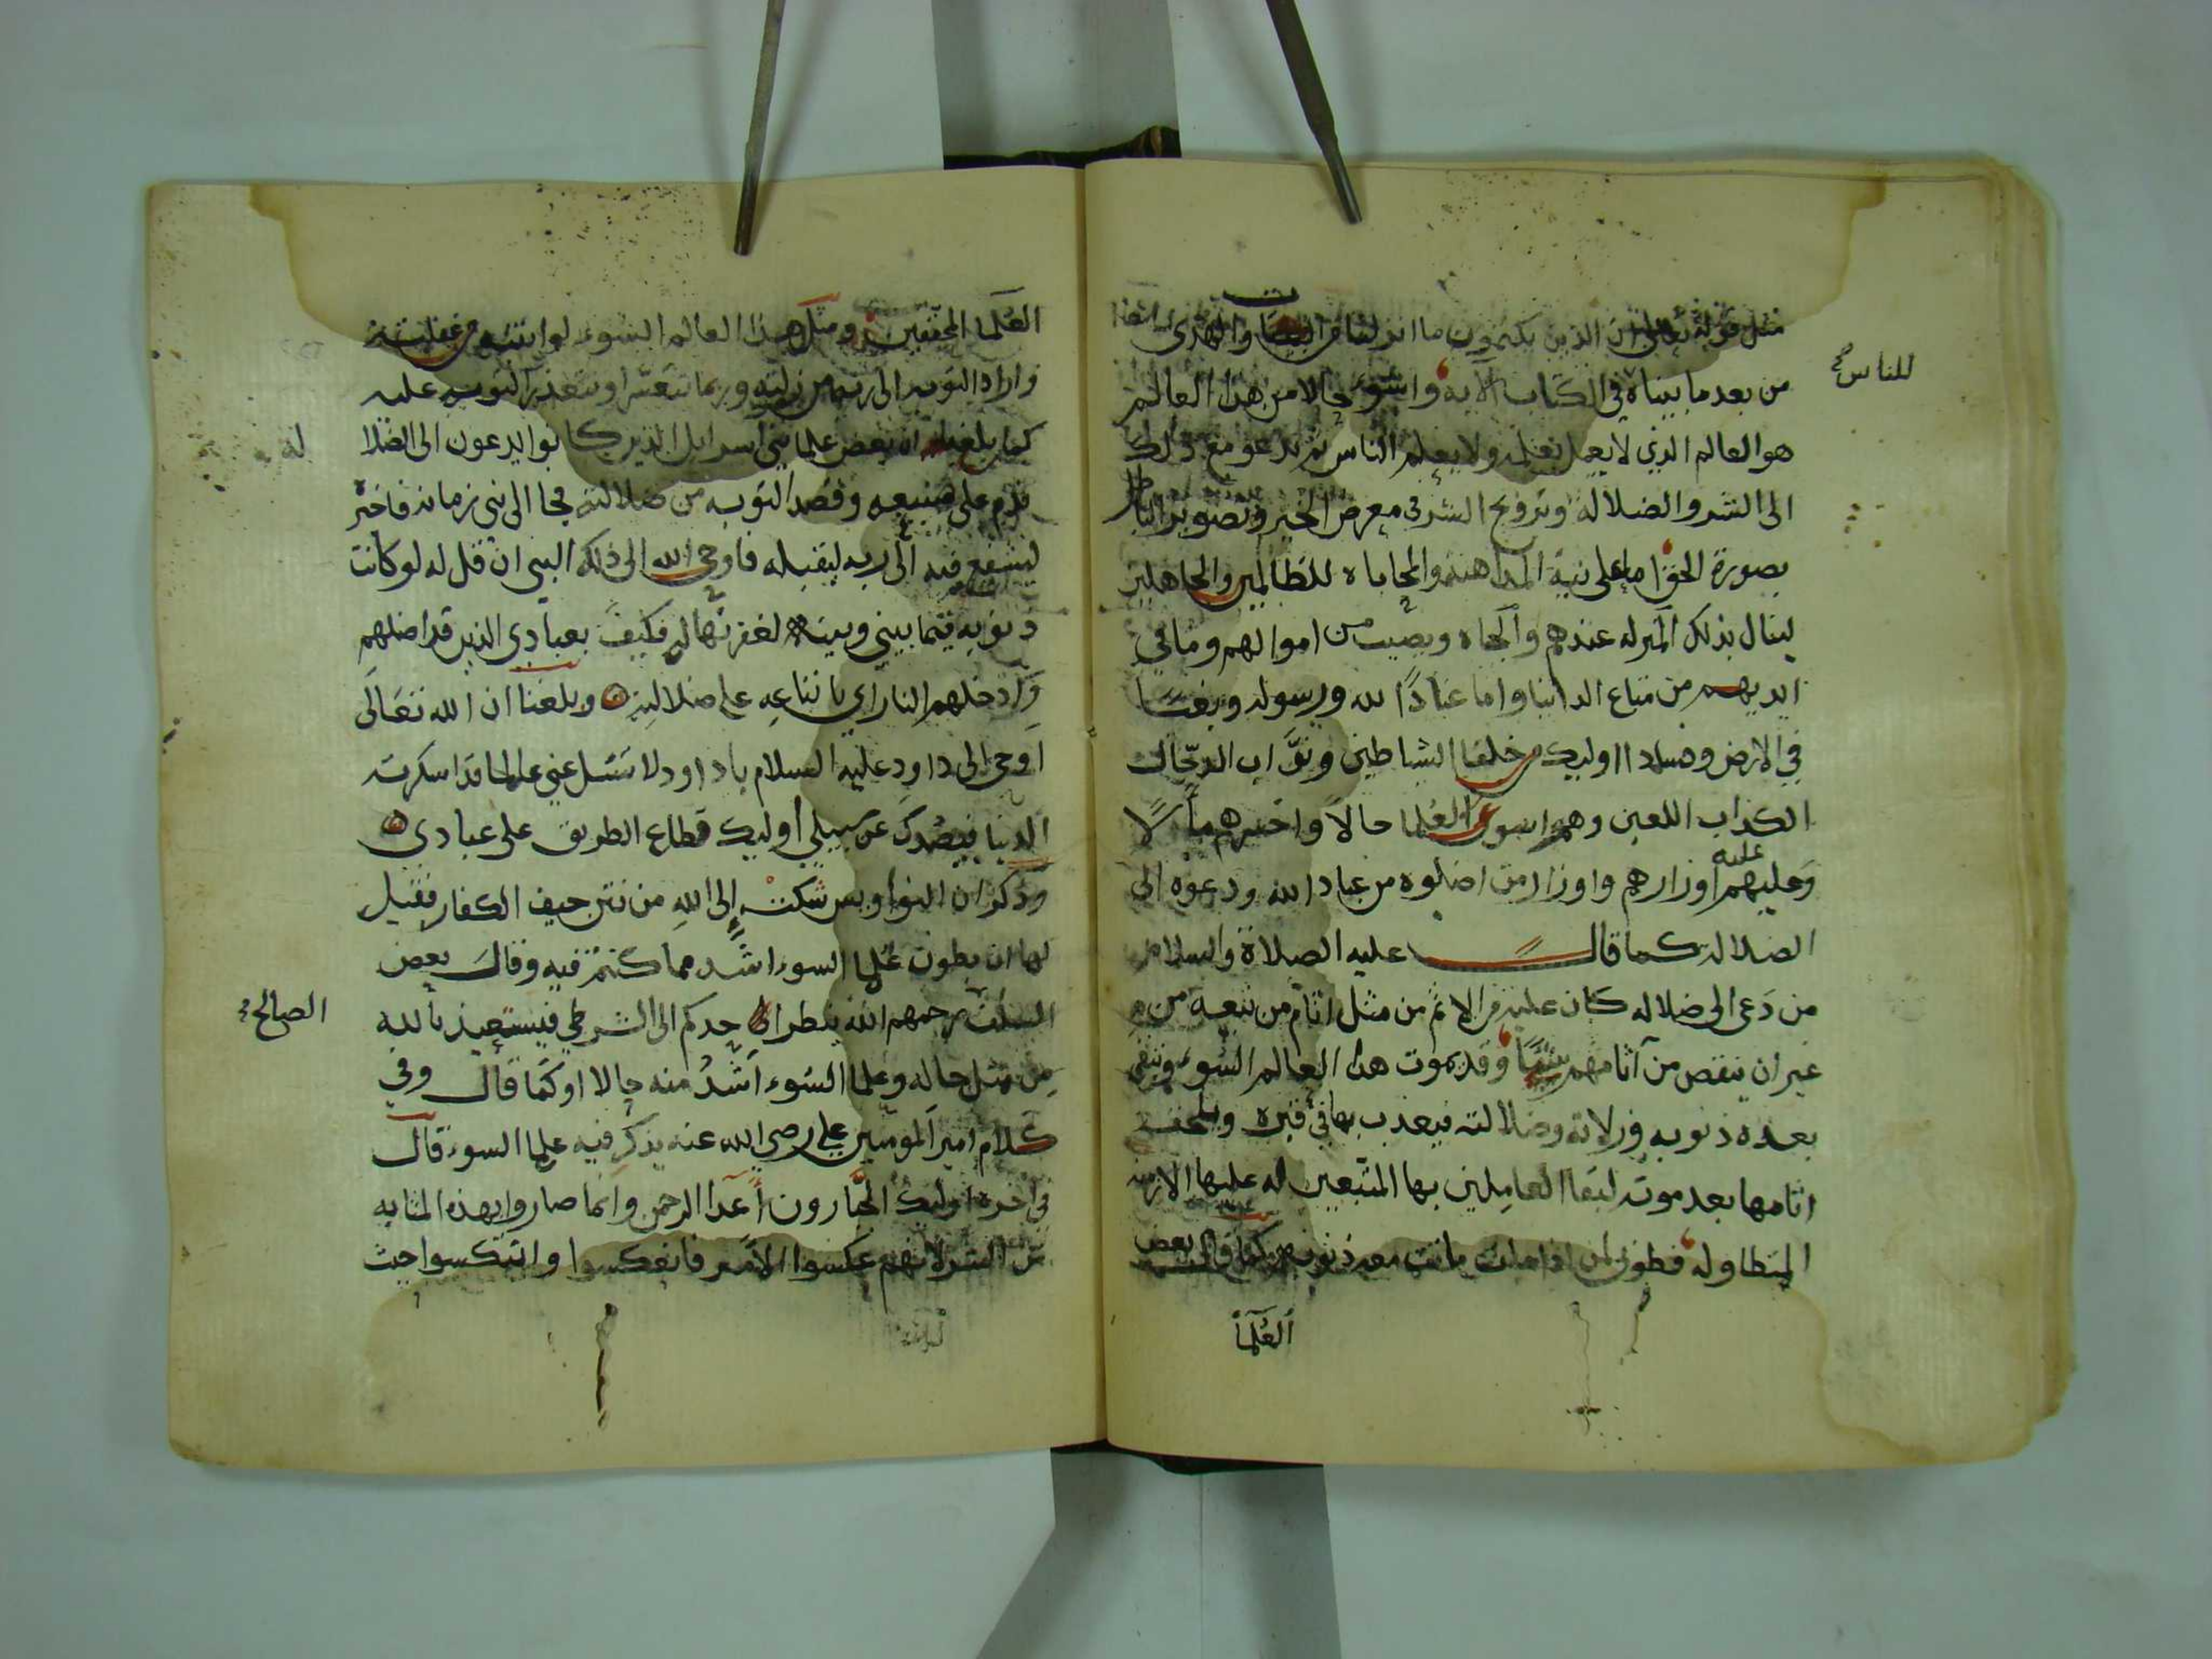 مثل قوله تعالى ان الذين يكتمون ما انزلنا من البينات والهدى
من بعد ما بيناه للناس في الكتاب الآية واسوء حالا من هذا العالم
هو العالم الذي لا يعمل بعلمه ولا يعلم الناس ثم يدعو مع ذلك
الى الشر والضلاله وترويج الشر في معرض الخير وتصوير الباطل
بصورة الحق اما على نية المداهنة والمحاباه للظالمين والجاهلين
لينال بذلك المنزله عندهم والجاه ويصيب من اموالهم ومما في
ايديهم من متاع الدنيا واما عنادًا لله ورسوله وبغيًا
في الارض وفسادا اوليك خلفا الشياطين ونوَّاب الدجّال
الكذاب اللعين وهم اسوى العُلما حالًا واخسرهم مآلًا
وعليهم اوزارهم واوزار من اضلوه من عباد الله ودعوه الى
الضلاله كما قال عليه الصلاة والسلام
من دَعى الى ضلاله كان عليه من الاثم من مثل اثام من تبعه من
غير ان ينقص من آثامهم شيئًا وقد يموت هذا العالم السُوء وتبقى
بعده ذنوبه وزلاته وضلالته فيعذب بها في قبره ويلحقه
اثامها بعد موته لبقا العامِلين بها المتبعين له عليها الازمنه
المتطاوله فطوبى لمن اذا مات ماتت معه ذنوبه كما قال بعض
العُلمآ
العُلما المحققين ومثل هذا العالم السُوء لو انتبه من غفلته
واراد التوبه الى ربه من زلته وربما تتعسّر او تتعذر التوبه عليه
كما بلغنا ان بعض علما بني اسرايل الذين كانوا يدعون الى الضلاله
ندم على صنيعه وقصد التوبه من ضلالته فجا الى نبي زمانه فاخبره
ليشفع فيه الى ربه ليقبله فاوحى الله الى ذلك النبي ان قل له لو كانت
ذنوبه فيما بيني وبينه لغفرتها له فكيف بعبادي الذين قد اضلهم
وادخلهم النار اي باتباعه على ضلالته وبلغنا ان الله تعَالَى
اوحى الى داود عليه السلام ياداود لا تسل عني عالما قد اسكرته
الدنيا فيصُدك عن سبيلي أوليك قطاع الطريق على عبادي
وذكر ان النواويس شكت إلى الله من نتن جيف الكفار فقيل
لها ان بطون عُلما السوء اشَّد مما كنتم فيه وقالَ بعض
السلف الصالح رحمهم الله ينظر احدكم الى الشرطي فيستعيذ بالله
مِن مثل حاله وعلما السُوء اشَدُ منه حالا او كمَا قال وفي
كلام امير المومنين علي رضي الله عنه يذكر فيه علما السوء قال
في اخره اوليك الجبّارون أعدا الرحمن وانما صاروا بهذه المثابه
من الشر لانهم عكسوا الأمر فانعكسوا وانتكسوا حيث